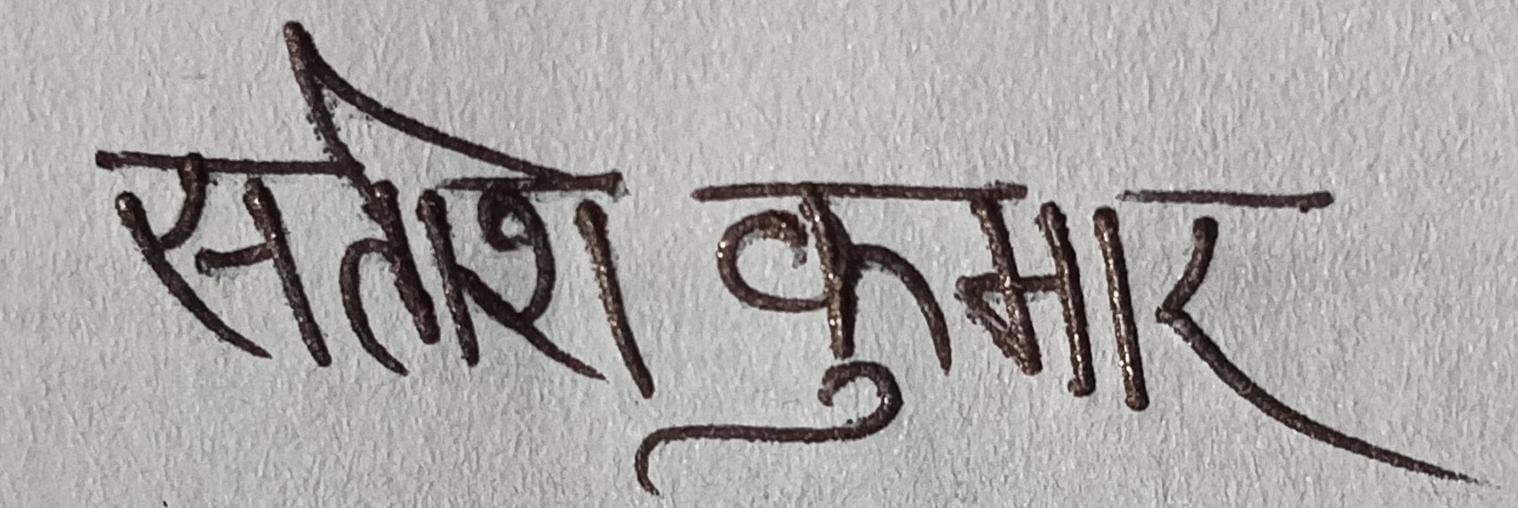 सतीश कुमार